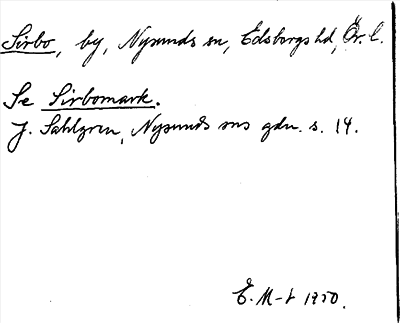 Sirbo, by, Nysunds sn, Edsbergs hd, Ör. l.
Se Sirbomark.
J. Sahlgren, Nysunds sns gdn. s. 14.
E. M-t 1950.